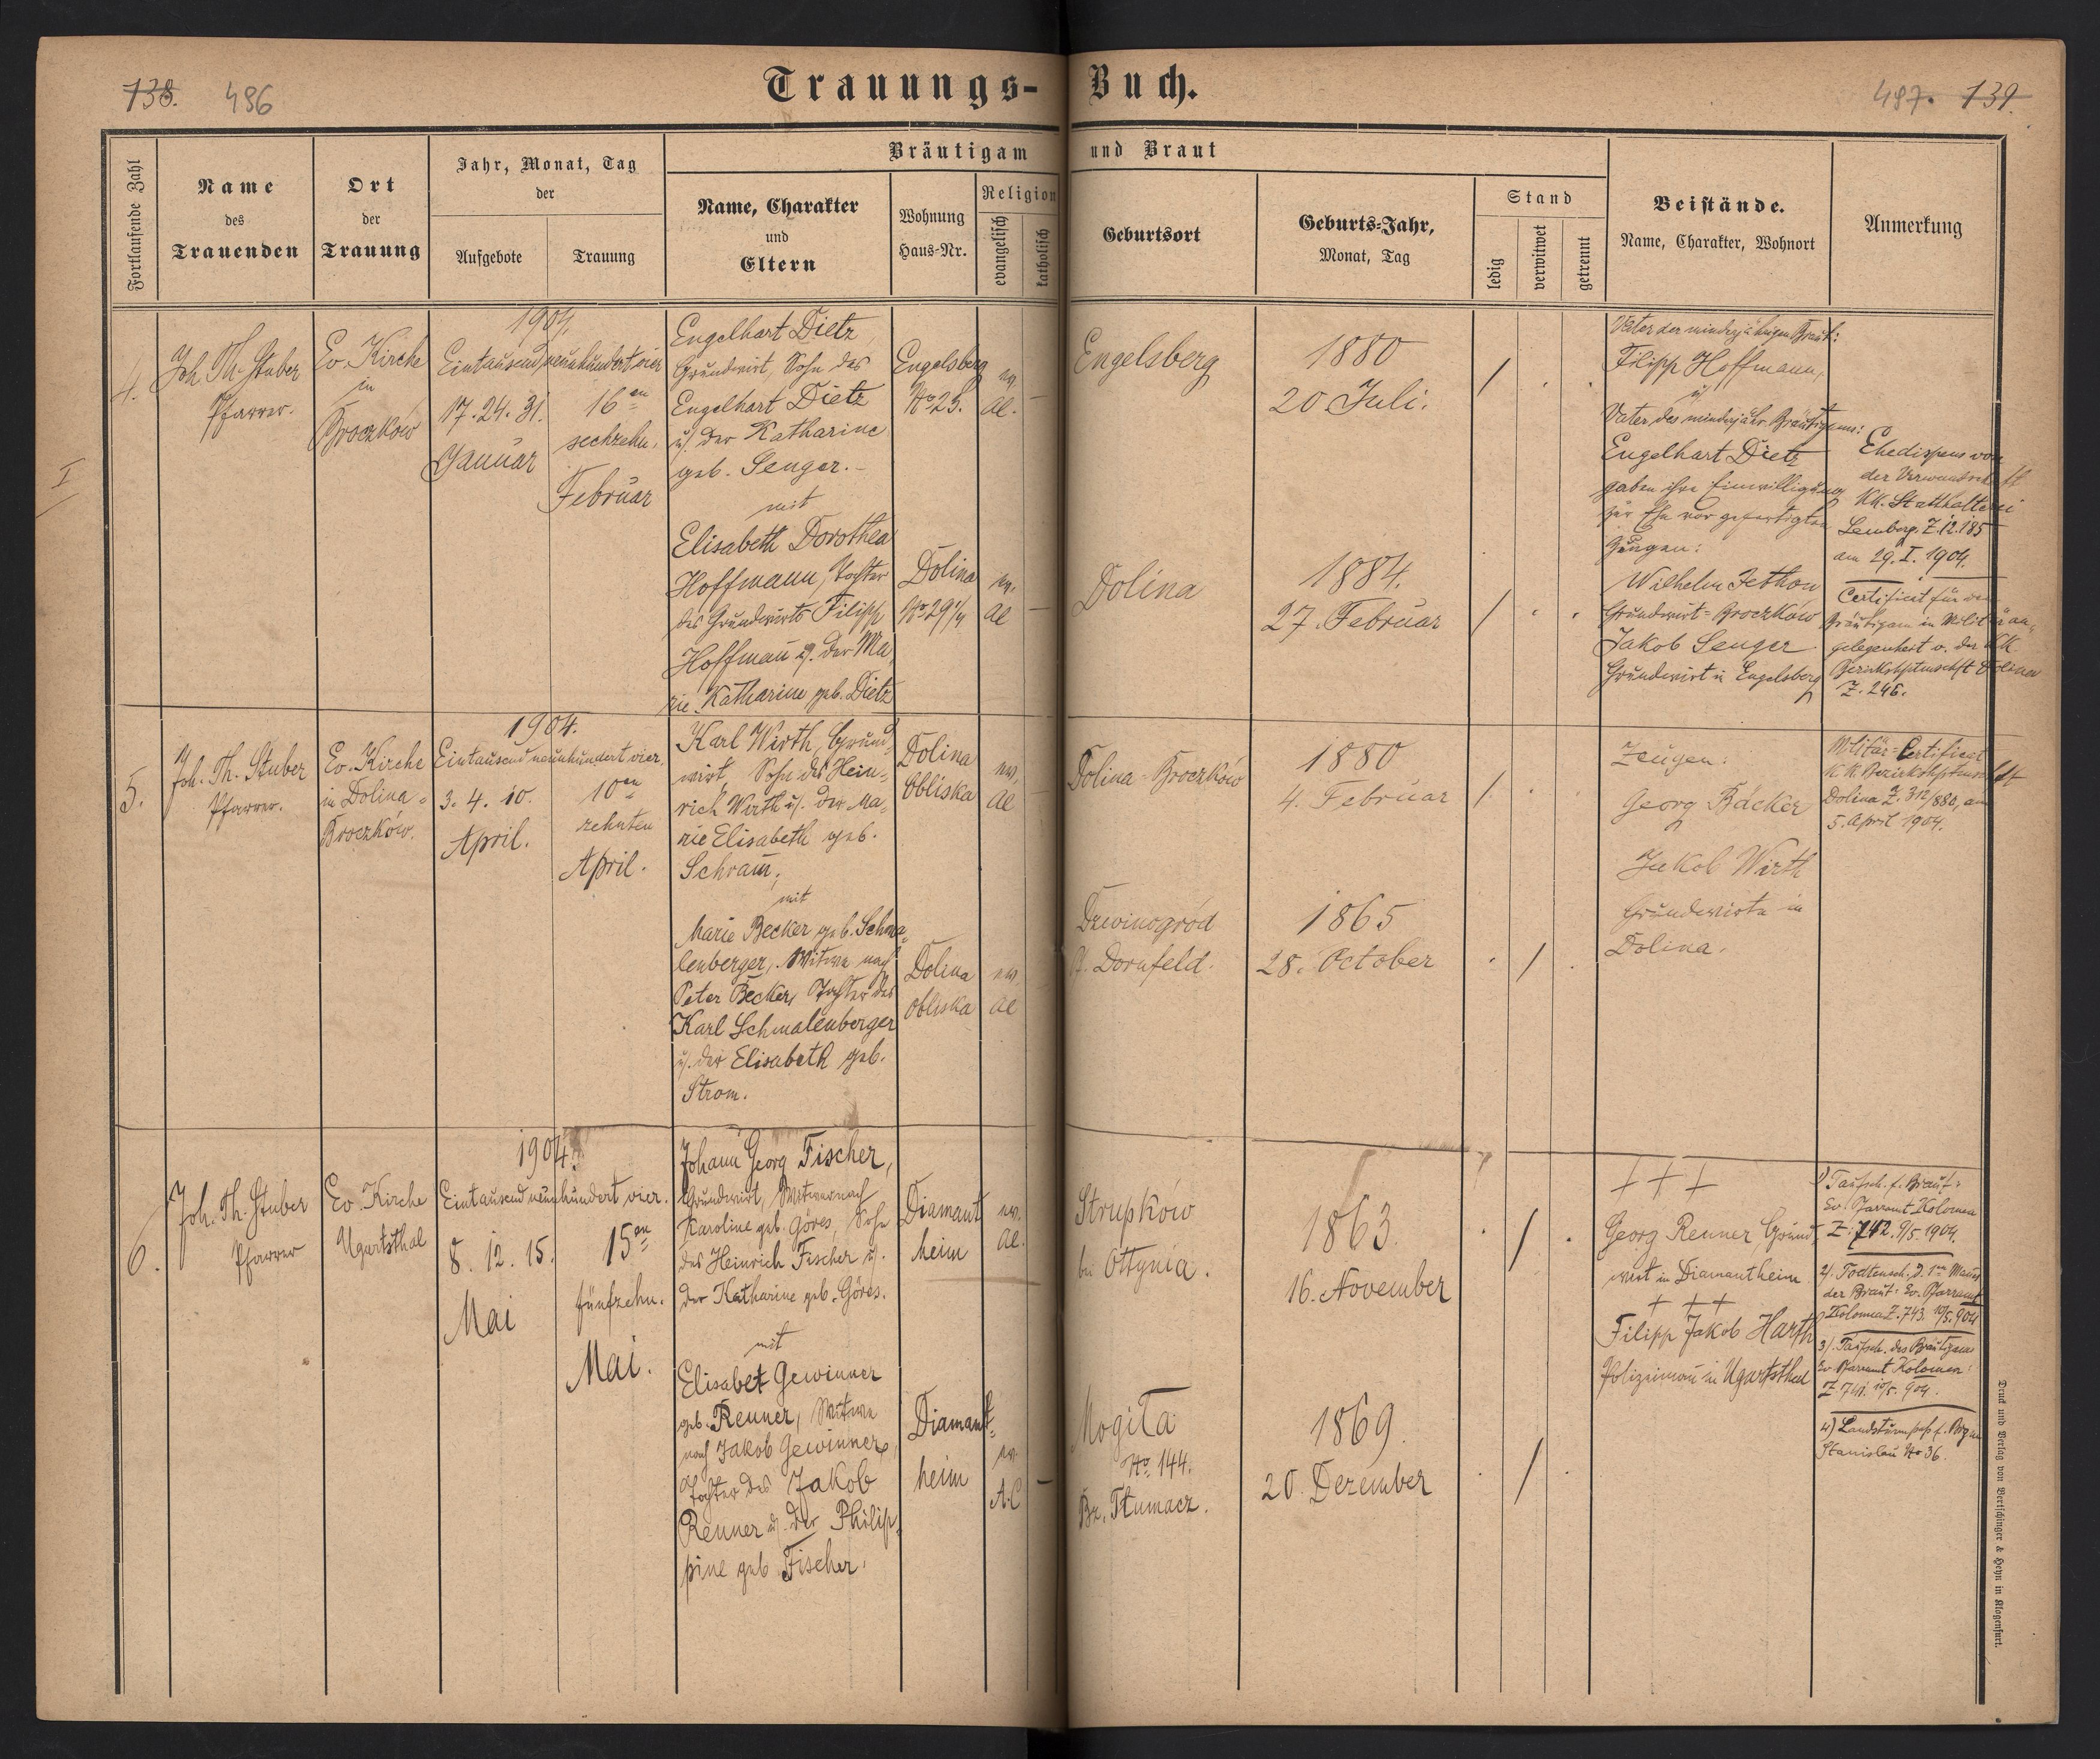 138. 486
Trauungs-Buch.
487. 139.
Fortlaufende Zahl
Name
des
Trauenden
Ort
der
Trauung
Jahr, Monat, Tag
der
Aufgebote
Trauung
Bräutigam und Braut
Name, Charakter
und
Eltern
Wohnung
Haus-Nr.
Religion
evangelisch
katholisch
Geburtsort
Geburts-Jahr,
Monat, Tag
Stand
ledig
verwitwet
getrennt
Beistände.
Name, Charakter, Wohnort
Anmerkung
I
4.
Joh. Th. Stuber
Pfarrer.
Ev. Kirche
in
Broczków
1904.
Eintausend neunhundert vier
17. 24. 31.
Januar
16en
sechzehn.
Februar
Engelhart Dietz,
Grundwirt, Sohn des
Engelhart Dietz
u. der Katharine
geb. Senger.-
mit
Elisabeth Dorothea
Hoffmann, Tochter
des Grundwirts Filipp
Hoffmañ u. der Ma-
rie Katharine geb. Dietz
Engelsberg
No 25.
ev.
AC.
Dolina
No 29 1/4
ev.
AC
Engelsberg
1880
20 Juli.
Dolina
1884.
27. Februar
Vater der minderjährigen Braut:
Filipp Hoffmann,
u.
Vater des minderjähr. Bräutigams:
Engelhart Dietz
gaben ihre Einwilligung
zur Ehe vor gefertigten
Zeugen:
Wilhelm Jethon
Grundwirt = Broczków
Jakob Senger
Grundwirt in Engelsberg
Ehedispens von
der Verwandschaft
KK. Statthalterei
Lemberg. Z. 12.185
am 29. I. 1904.
Certificat für den
Bräutigam in Militäran-
gelegenheit v. der KK
Bezirkshptmschft Dolina
Z. 246.
5.
Joh. Th. Stuber
Pfarrer.
Ev. Kirche
in Dolina =
Broczków.
1904.
Eintausend neunhundert vier.
3. 4. 10.
April.
10en
zehnten
April.
Karl Wirth, Grund-
wirt, Sohn des Hein-
rich Wirth u. der Ma-
rie Elisabeth geb.
Schram̃,
mit
Marie Becker geb. Schma-
lenberger, Witwe nach
Peter Becker, Tochter des
Karl Schmalenberger
u. der Elisabeth geb.
Strom.
Dolina
Obliska
ev.
AC
Dolina
Obliska
ev.
AC
Dolina = Broczków
1880
4. Februar
Dzwinogród
Dornfeld.
1865
28. October
Zeugen:
Georg Bäcker
Jakob Wirth
Grundwirte in
Dolina.
Militär = Certificat
K.K. Bezirkshptmschft
Dolina Z. 312/880, am
5. April 1904.
6.
Joh. Th. Stuber
Pfarrer
Ev. Kirche
Ugartsthal
1904.
Eintausend neunhundert vier.
8. 12. 15.
Mai
15en
fünfzehn.
Mai.
Johann Georg Fischer,
Grundwirt, Witwer nach
Karoline geb. Göres, Sohn
des Heinrich Fischer u.
der Katharine geb. Göres.
mit
Elisabet Gewinner
geb. Renner, Witwe
nach Jakob Gewinner,
Tochter des Jakob
Renner u. der Philip-
pine geb. Fischer.
Diamant
heim
ev.
AC.
Diamant-
heim
ev.
A.C
Strupków
bei Ottynia.
1863.
16. November
Mogiła
No. 144.
Bz. Tłumacz.
1869.
20. Dezember
+++
Georg Renner, Grund-
wirt in Diamantheim
+++
Filipp Jakob Harth
Polizeiman̄ in Ugartsthal
1) Taufsch. f. Braut:
Ev. Pfarramt Kolomea
Z. 742. 9/5. 1904.
2). Todtensch. d. 1en Mañes
der Braut: Ev. Pfarramt
Kolomea Z. 743. 10/5. 904
3). Taufsch. des Bräutigams
Ev. Pfarramt Kolomea:
Z. 741. 10/5. 904.
4) Landsturmpass f. Bräutigam
Stanislau No 36.
Druck und Verlag von Bertschinger & Heyn in Klagenfurt.